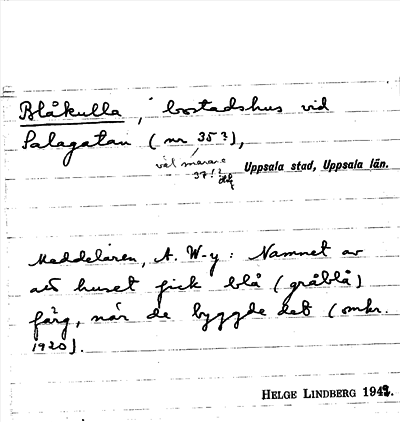 Blåkulla, bostadshus vid
Salagatan (nr 35?),
väl snarare
37!?
Uppsala stad, Uppsala län.
Meddelaren, A. W-y: Namnet av
att huset fick blå (gråblå)
färg, när de byggde det (omkr.
1920).
HELGE LINDBERG 1942.